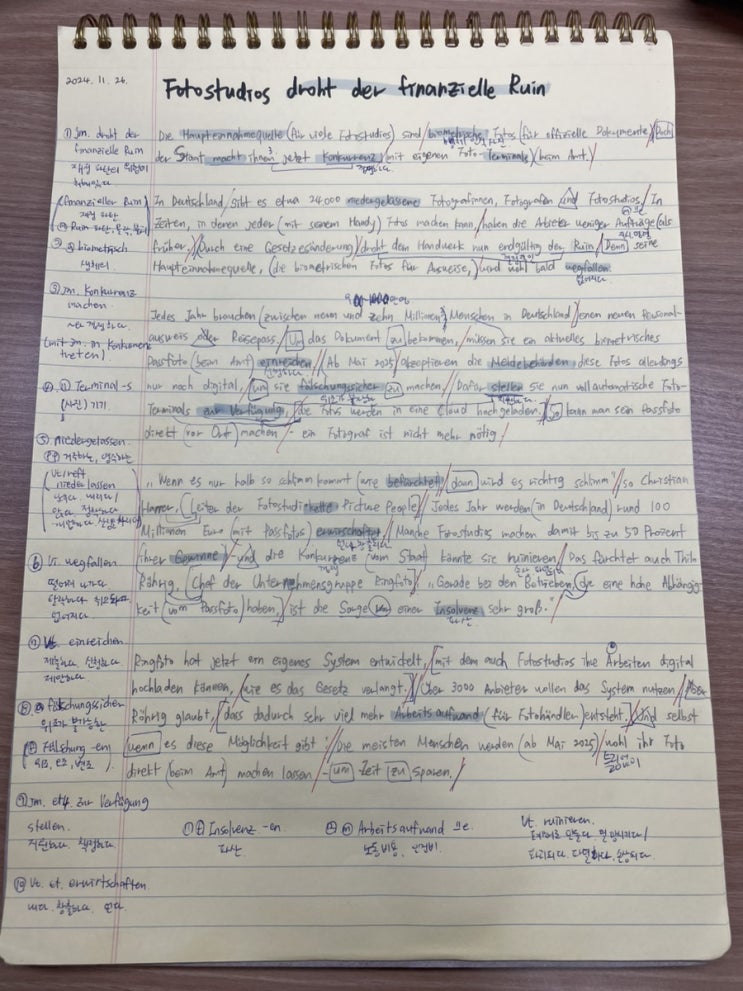 2024. 11. 26.
Fotostudios droht der finanzielle Ruin
① jm. droht der
finanzielle Ruin
Die Haupteinnahmequelle (für viele Fotostudios) sind biometrische Fotos (für offizielle Dokumente) Doch
der Staat macht ihnen jetzt Konkurrenz mit eigenen Foto-Terminals (beim Amt).
finanzieller Ruin
재정 파탄
② biometrisch
생체의
In Deutschland gibt es etwa 24000 niedergelassene Fotografinnen, Fotografen und Fotostudios. In
Zeiten, in denen jeder (mit seinem Handy) Fotos machen kann, haben die Arbieter weniger Aufträge (als
früher). Durch eine Gesetzesänderung droht dem Handwerk nun endgültig der Ruin. Denn seine
Haupteinnahmequelle, (die biometrischen Fotos für Ausweise,) wird wohl bald wegfallen.
없어지다
③ jm. Konkurrenz
machen
~와 경쟁하다.
(mit jm. in Konkurrenz
treten).
Jedes Jahr brauchen (zwischen neun und zehn Millionen) Menschen in Deutschland einen neuen Personal-
ausweis oder Reisepass. Um das Dokument zu bekommen, müssen sie ein aktuelles biometrisches
Passfoto (beim Amt) einreichen. Ab Mai 2025 akzeptieren die Meldebehörden diese Fotos allerdings
nur noch digital, um sie fälschungssicher zu machen. Dafür stellen sie nun vollautomatische Foto-
Terminals zur Verfügung, die Fotos werden in eine Cloud hochgeladen. So kann man sein Passfoto
direkt (vor Ort) machen - ein Fotograf ist nicht mehr nötig.
④ Terminal -s
(사진) 기기
⑤ niedergelassen
거주하는,
niederlassen
"Wenn es nur halb so schlimm kommt (wie befürchtet) dann wird es richtig schlimm" so Christian
Harrer, (Leiter der Fotostudiokette Picture People) Jedes Jahr werden (in Deutschland) rund 100
Millionen Euro (mit Passfotos) erwirtschaftet. Manche Fotostudios machen damit bis zu 50 Prozent
ihrer Gewinne - und die Konkurrenz (vom Staat) könnte sie ruinieren. Das fürchtet auch Thilo
Röhrig, Chef der Unternehmensgruppe Ringfoto. "Gerade bei den Betrieben, die eine hohe Abhängig-
keit (vom Passfoto) haben, ist die Sorge um einer Insolvenz sehr groß."
파산
⑥ vi. wegfallen
없어지다.
⑦ vt. einreichen
제출하다. 신청하다
제안하다.
Ringfoto hat jetzt ein eigenes System entwickelt, mit dem auch Fotostudios ihre Arbeiten digital
hochladen können, (wie es das Gesetz verlangt.) Über 3000 Anbieter wollen das System nutzen. Aber
Röhrig glaubt, dass dadurch sehr viel mehr Arbeitsaufwand (für Fotohändler) entsteht. Und selbst
wenn es diese Möglichkeit gibt: Die meisten Menschen werden (ab Mai 2025) wohl ihr Foto
direkt (beim Amt) machen lassen - um Zeit zu sparen.
⑧ fälschungssicher
위조가 불가능한
Fälschung -en
위조, 변조
⑨ jm. etw. zur Verfügung
stellen.
⑩ vt. et. erwirtschaften
⑪ Insolvenz -en
파산
⑫ Arbeitsaufwand ⸚e.
노동비용.
vt. ruinieren.